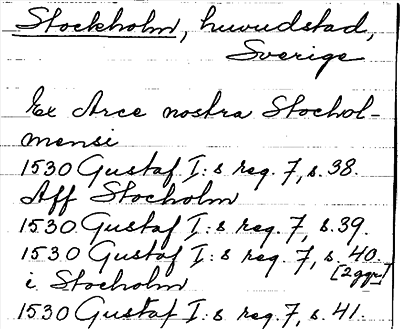 Stockholm, huvudstad,
Sverige
Ex Arce nostra Stochol-
mensi
1530 Gustaf I:s reg. 7, s. 38.
Aff Stocholm
1530 Gustaf I:s reg. 7, s. 39.
1530 Gustaf I:s reg. 7, s. 40
[2 ggr]
i Stocholm
1530 Gustaf I:s reg. 7, s. 41.